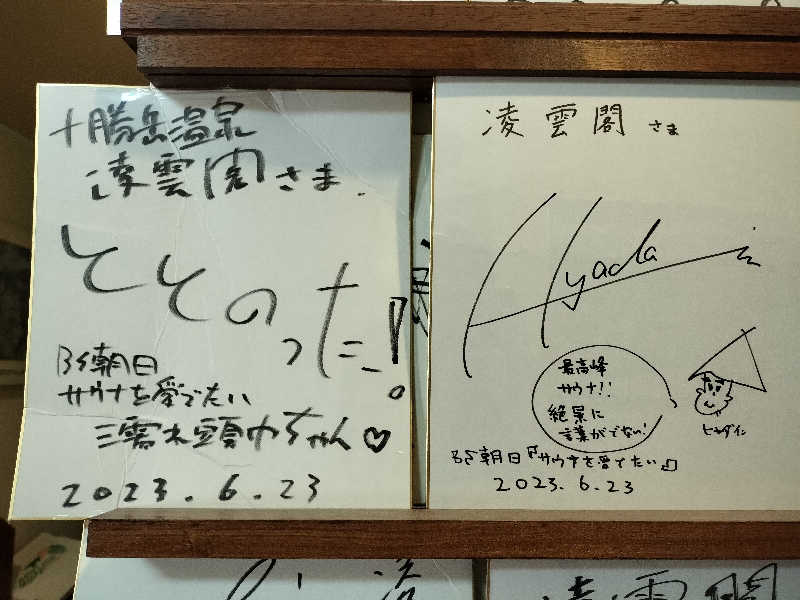 十勝岳温泉
凌雲閣さま.
ととのった!
BS朝日
サウナを愛でたい
ちゃん♡
2023.6.23
凌雲閣さま
Hyada
最高峰
サウナ!!
絶景に
言葉がでない!
ヒャダイン
BS朝日『サウナを愛でたい』
2023.6.23
凌雲閣